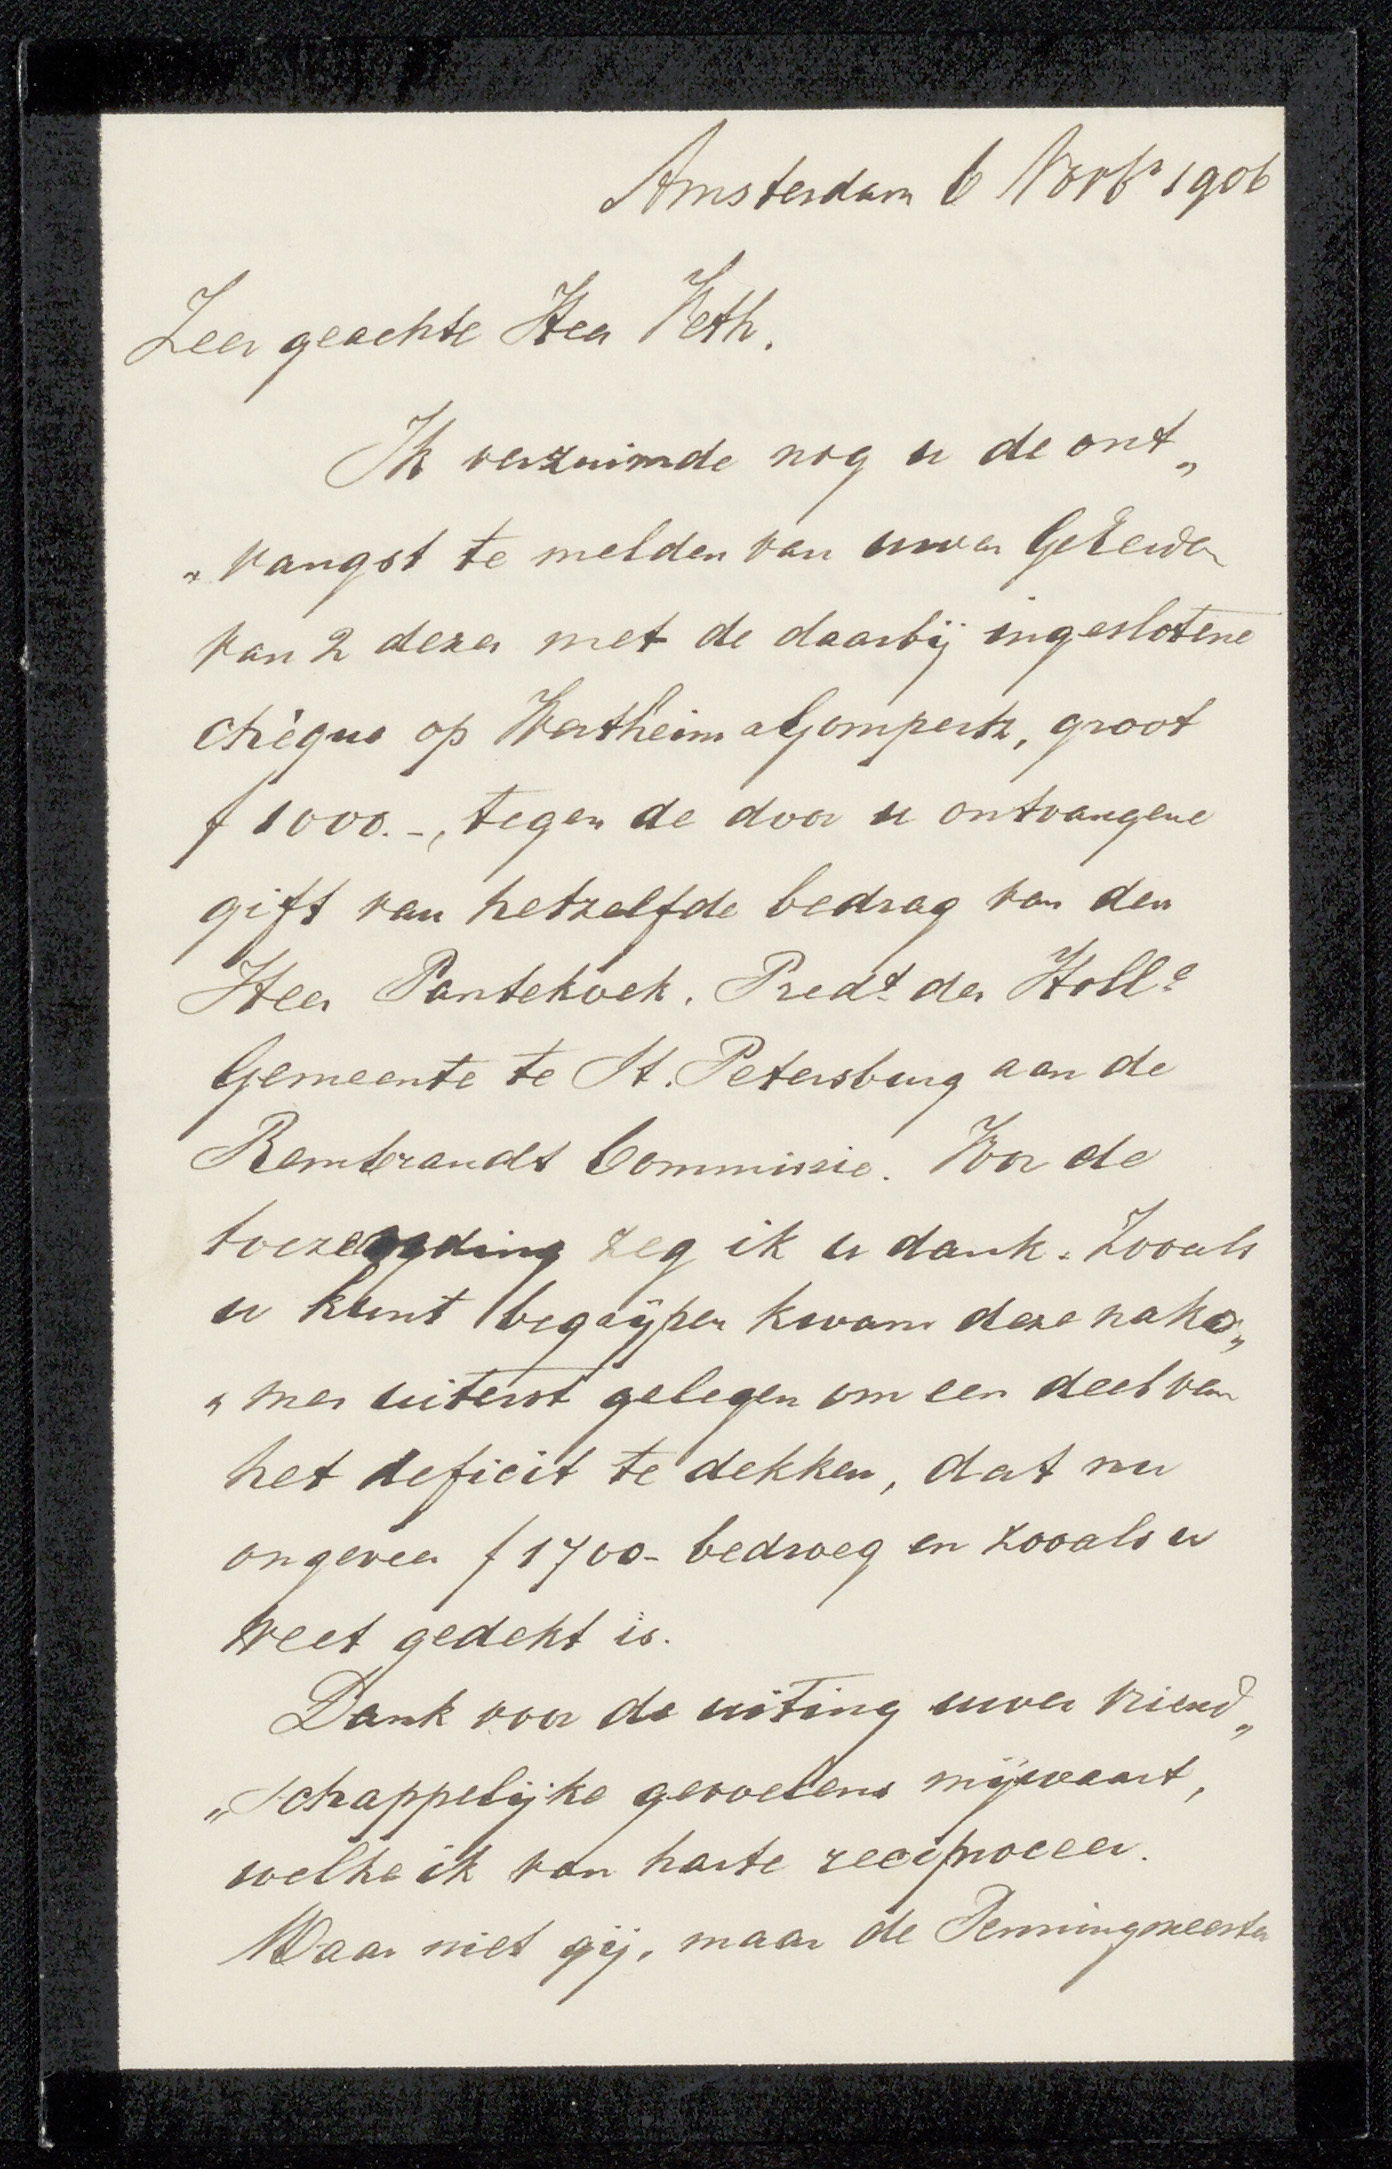 Amsterdam 6 Novbr 1906
Zeer geachte Heer Veth.
Ik verzuimde nog u de ont„
„vangst te melden van uwen Geëerden
van 2 dezer met de daarbij ingeslotene
chèque op Wertheim & Gompertz, groot
f 1000.-, tegen de door u ontvangene
gift van hetzelfde bedrag van den
Heer Pantekoek. Predt der Holle
Gemeente te St. Petersburg aan de
Rembrandt Commissie. Voor de
toezending zeg ik u dank. Zooals
u kunt begrijpen kwam deze nako„
„mer uiterst gelegen om een deel van
het deficit te dekken, dat nu
ongeveer f 1700- bedroeg en zooals u
weet gedekt is.
Dank voor de uiting uwer vriend„
„schappelijke gevoelens mijwaart,
welke ik van harte reciproceer.
Waar niet gij, maar de Penningmeester